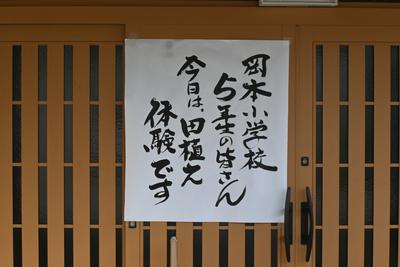 岡本小学校
5年生の皆さん
今日は、田植え
体験です